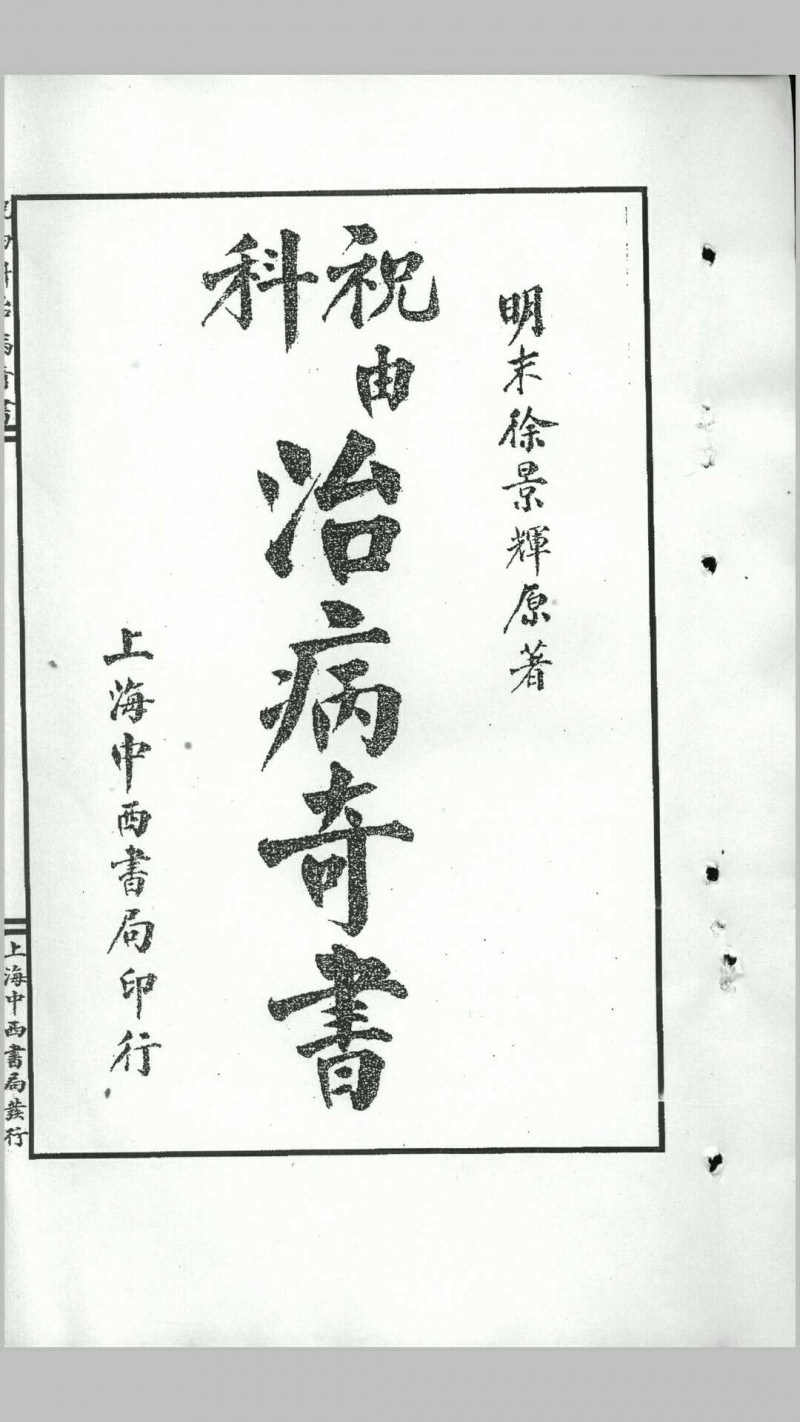 明末徐景輝原著
祝由科
治病奇書
上海中西書局印行
上海中西書局發行